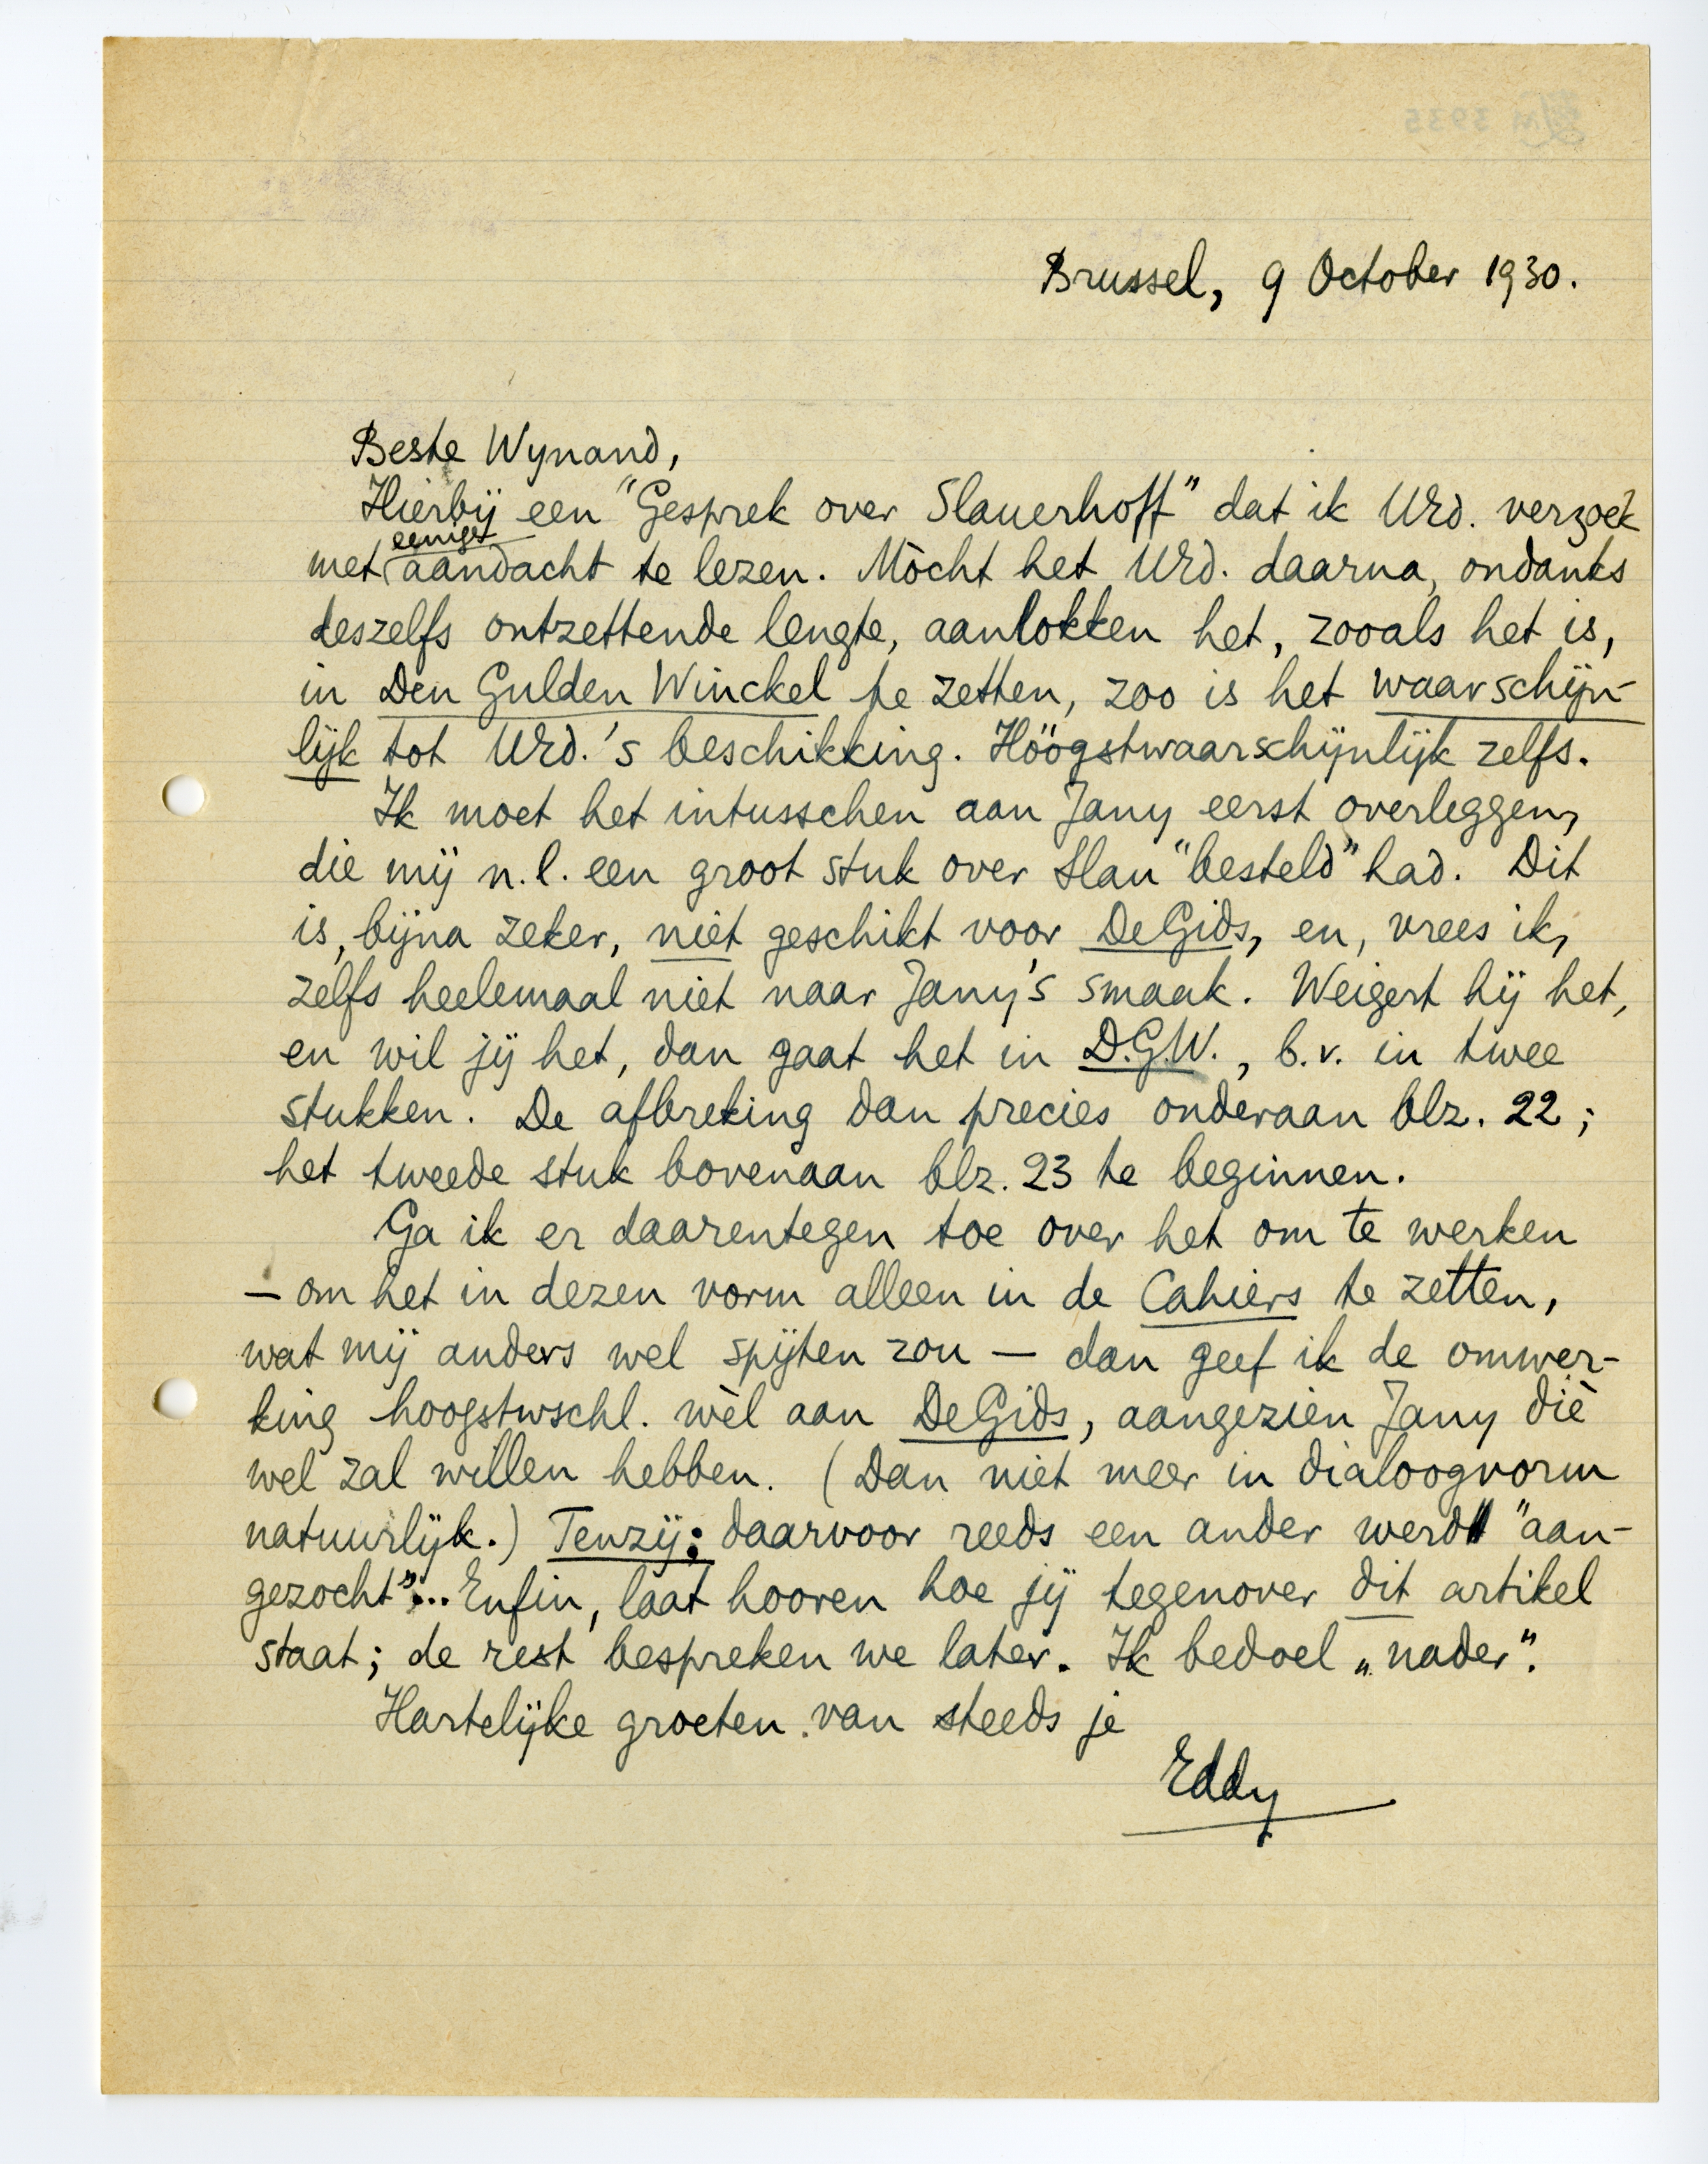 Brussel, 9 October 1930.
Beste Wynand,
Hierbij een "Gesprek over Slauerhoff" dat ik Urd. verzoek
met eenige aandacht te lezen. Mòcht het Urd. daarna, ondanks
deszelfs ontzettende lengte, aanlokken het, zooals het is,
in Den Gulden Winckel te zetten, zoo is het waarschijn-
lijk tot Urd.'s beschikking. Höögstwaarschijnlijk zelfs.
Ik moet het intusschen aan Jany eerst overleggen,
die mij n.l. een groot stuk over Slau "besteld" had. Dit
is, bijna zeker, niet geschikt voor De Gids, en, vrees ik,
zelfs heelemaal niet naar Jany's smaak. Weigert hij het,
en wil jij het, dan gaat het in D.G.W., b.v. in twee
stukken. De afbreking dan precies onderaan blz. 22;
het tweede stuk bovenaan blz. 23 te beginnen.
Ga ik er daarentegen toe over het om te werken
— om het in dezen vorm alleen in de Cahiers te zetten,
wat mij anders wel spijten zou — dan geef ik de omwer-
king hoogstwschl. wèl aan De Gids, aangezien Jany diè
wel zal willen hebben. (Dan niet meer in dialoogvorm
natuurlijk.) Tenzij: daarvoor reeds een ander werd "aan-
gezocht"... Enfin, laat hooren hoe jij tegenover dit artikel
staat; de rest bespreken we later. Ik bedoel „nader".
Hartelijke groeten van steeds je
Eddy